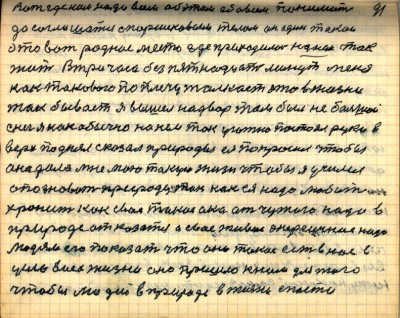 91
Вот где она надо вам об этом обо всём понимат
до соглошати спаршиковым телом он один такой
это вот родное место где приходилос на нём так
жит. В три часа без пятнадцати минут меня
как такового по плечу толкает это в жизни
так бывает я вышел надвор там был не большой
снег я как обычно на нём так нужно постоял руки в
верх поднял сказал природы ея попросил чтобы
она дала мне мою такую жизнь чтобы я учился
опозноват природу так как ея надо любит
хронит как своя такая она от чужого надо в
природе отказатся а свое живое энергичное надо
людям его показат что оно такое ест в нас в
цело всех жизни оно пришло к ним для того
чтобы людей в природе в жизни спасти